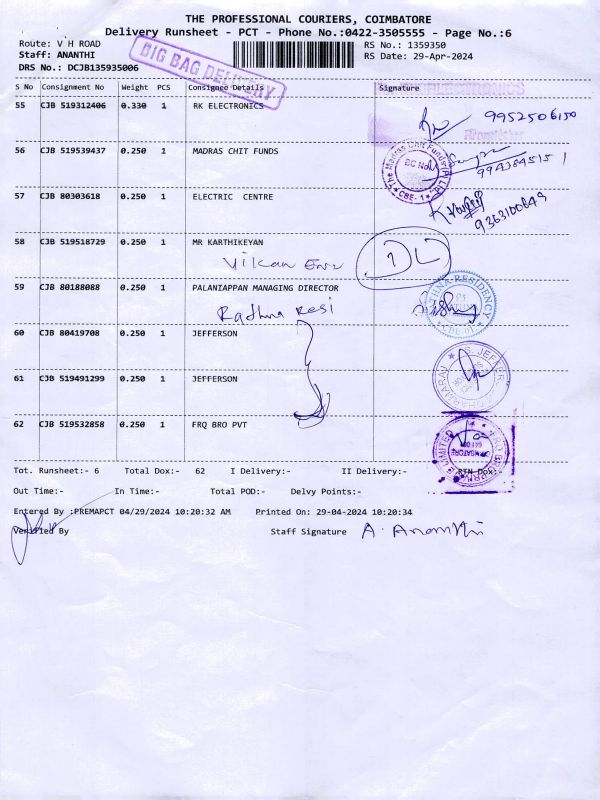 THE PROFESSIONAL COURIERS, COIMBATORE
Delivery Runsheet - PCT - Phone No.:0422-3505555 - Page No.:6
Route: V H ROAD RS No.: 1359350
Staff: ANANTHI RS Date: 29-Apr-2024
DRS No.: DCJB135935006
BIG BAG DELIVERY
S No Consignment No Weight PCS Consignee Details Signature
55 CJB 519312406 0.330 1 RK ELECTRONICS
9952506150
56 CJB 519539437 0.250 1 MADRAS CHIT FUNDS
The Madras Chit Funds(P)
CBE-1
57 CJB 80303618 0.250 1 ELECTRIC CENTRE
9363100849
58 CJB 519518729 0.250 1 MR KARTHIKEYAN
59 CJB 80188088 0.250 1 PALANIAPPAN MANAGING DIRECTOR
Rathna Resi
RESIDENCY
60 CJB 80419708 0.250 1 JEFFERSON
61 CJB 519491299 0.250 1 JEFFERSON
62 CJB 519532858 0.250 1 FRQ BRO PVT
Tot. Runsheet:- 6 Total Dox:- 62 I Delivery:- II Delivery:- RTN Dox:-
Out Time:- In Time:- Total POD:- Delvy Points:-
Entered By :PREMAPCT 04/29/2024 10:20:32 AM Printed On: 29-04-2024 10:20:34
Verified By Staff Signature A. Ananthi